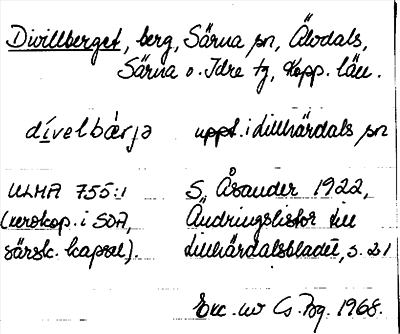 Divillberget, berg, Särna sn, Älvdals,
Särna o. Idre tg, Kopp. län.
dívelbärjə uppt. i Lillhärdals sn
ULMA 755:1 S. Åsander 1922,
(xerokop. i SOA, Ändringslistor till
särsk. kapsel). Lillhärdalsbladet, s. 21
Exc. av 1968.